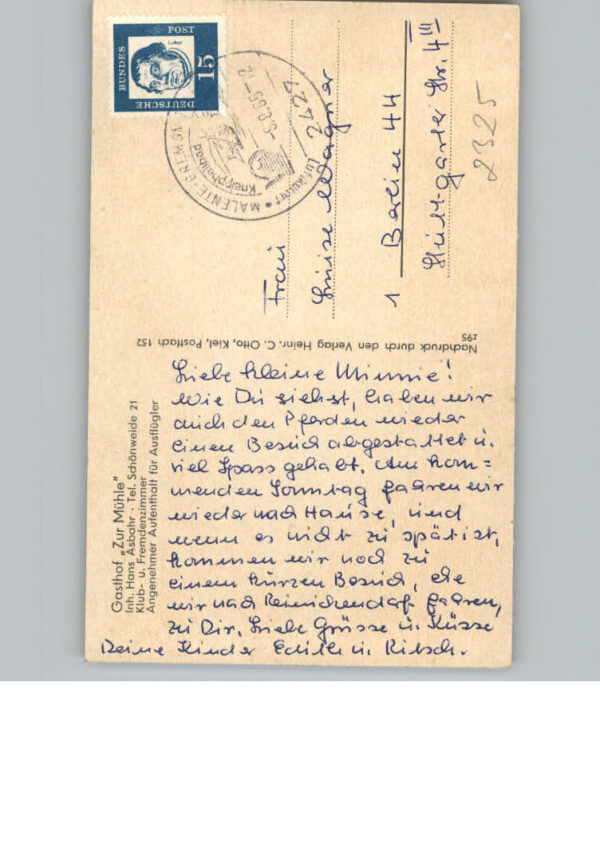 Gasthof „Zur Mühle"
Inh. Hans Asbahr · Tel. Schönweide 21
Klub- u. Fremdenzimmer
Angenehmer Aufenthalt für Ausflügler
Liebe kleine Minnie!
Wie Du siehst, haben wir
auch den Pferden wieder
einen Besuch abgestattet u.
viel Spass gehabt. Am kom=
menden Sonntag fahren wir
wieder nach Hause, und
wenn es nicht zu spät ist,
kommen wir noch zu
einem kurzen Besuch, ehe
wir nach Reinickendorf fahren,
zu Dir. Liebe Grüsse u. Küsse
Deine Kinder Edith u. Kitsch.
Nachdruck durch den Verlag Heinr. C. Otto, Kiel, Postfach 152
z95
DEUTSCHE BUNDESPOST
15
Luther
2427
MALENTE-GREMSM
Luftkurort
Kneippheilbad
Frau
Luise Wagner
1 Berlin 44
Stuttgarter Str. 4 III
2325